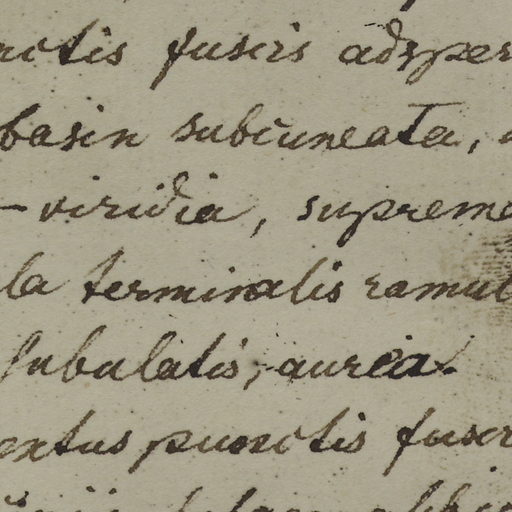 nctis fuscis adsper
basin subcuneata,
-viridia, supreme
la terminalis ramul
subulatis, aurea.
extus punctis fusc